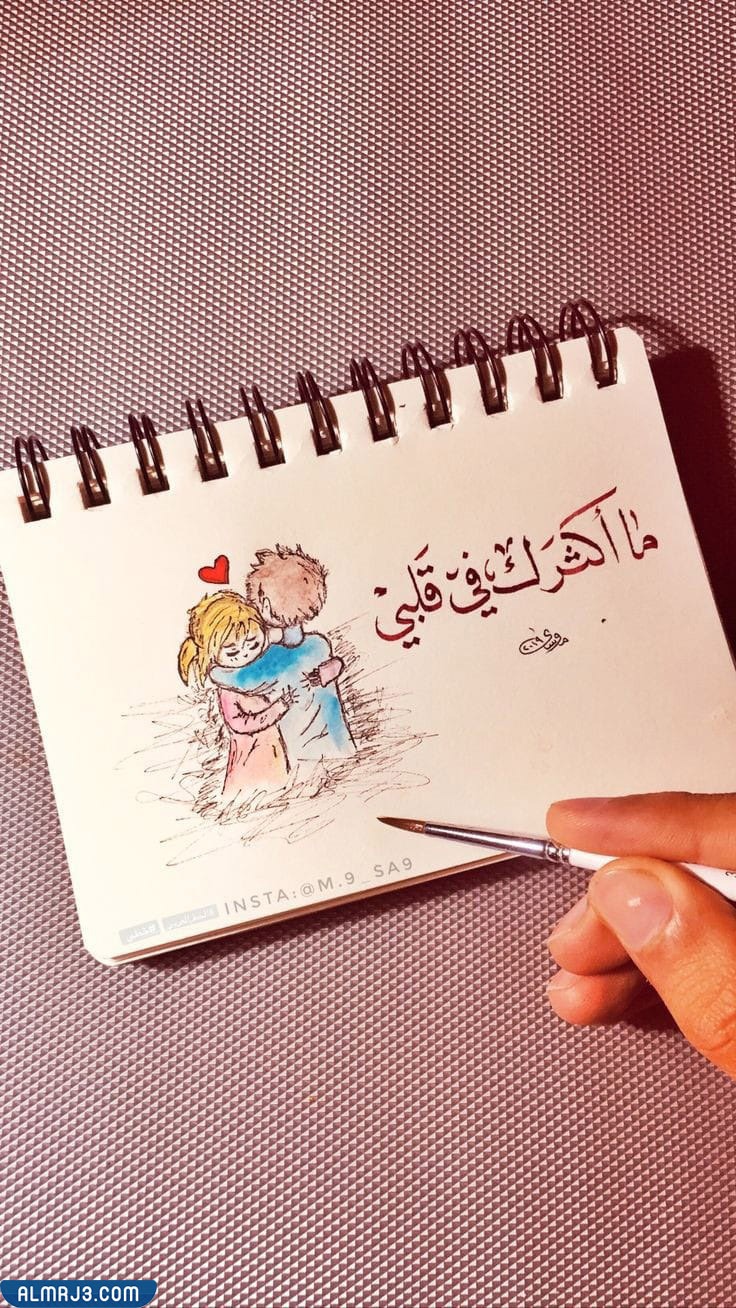 ما أكثرَك في قَلبي
INSTA:@M.9_SA9
ALMRJ3.COM